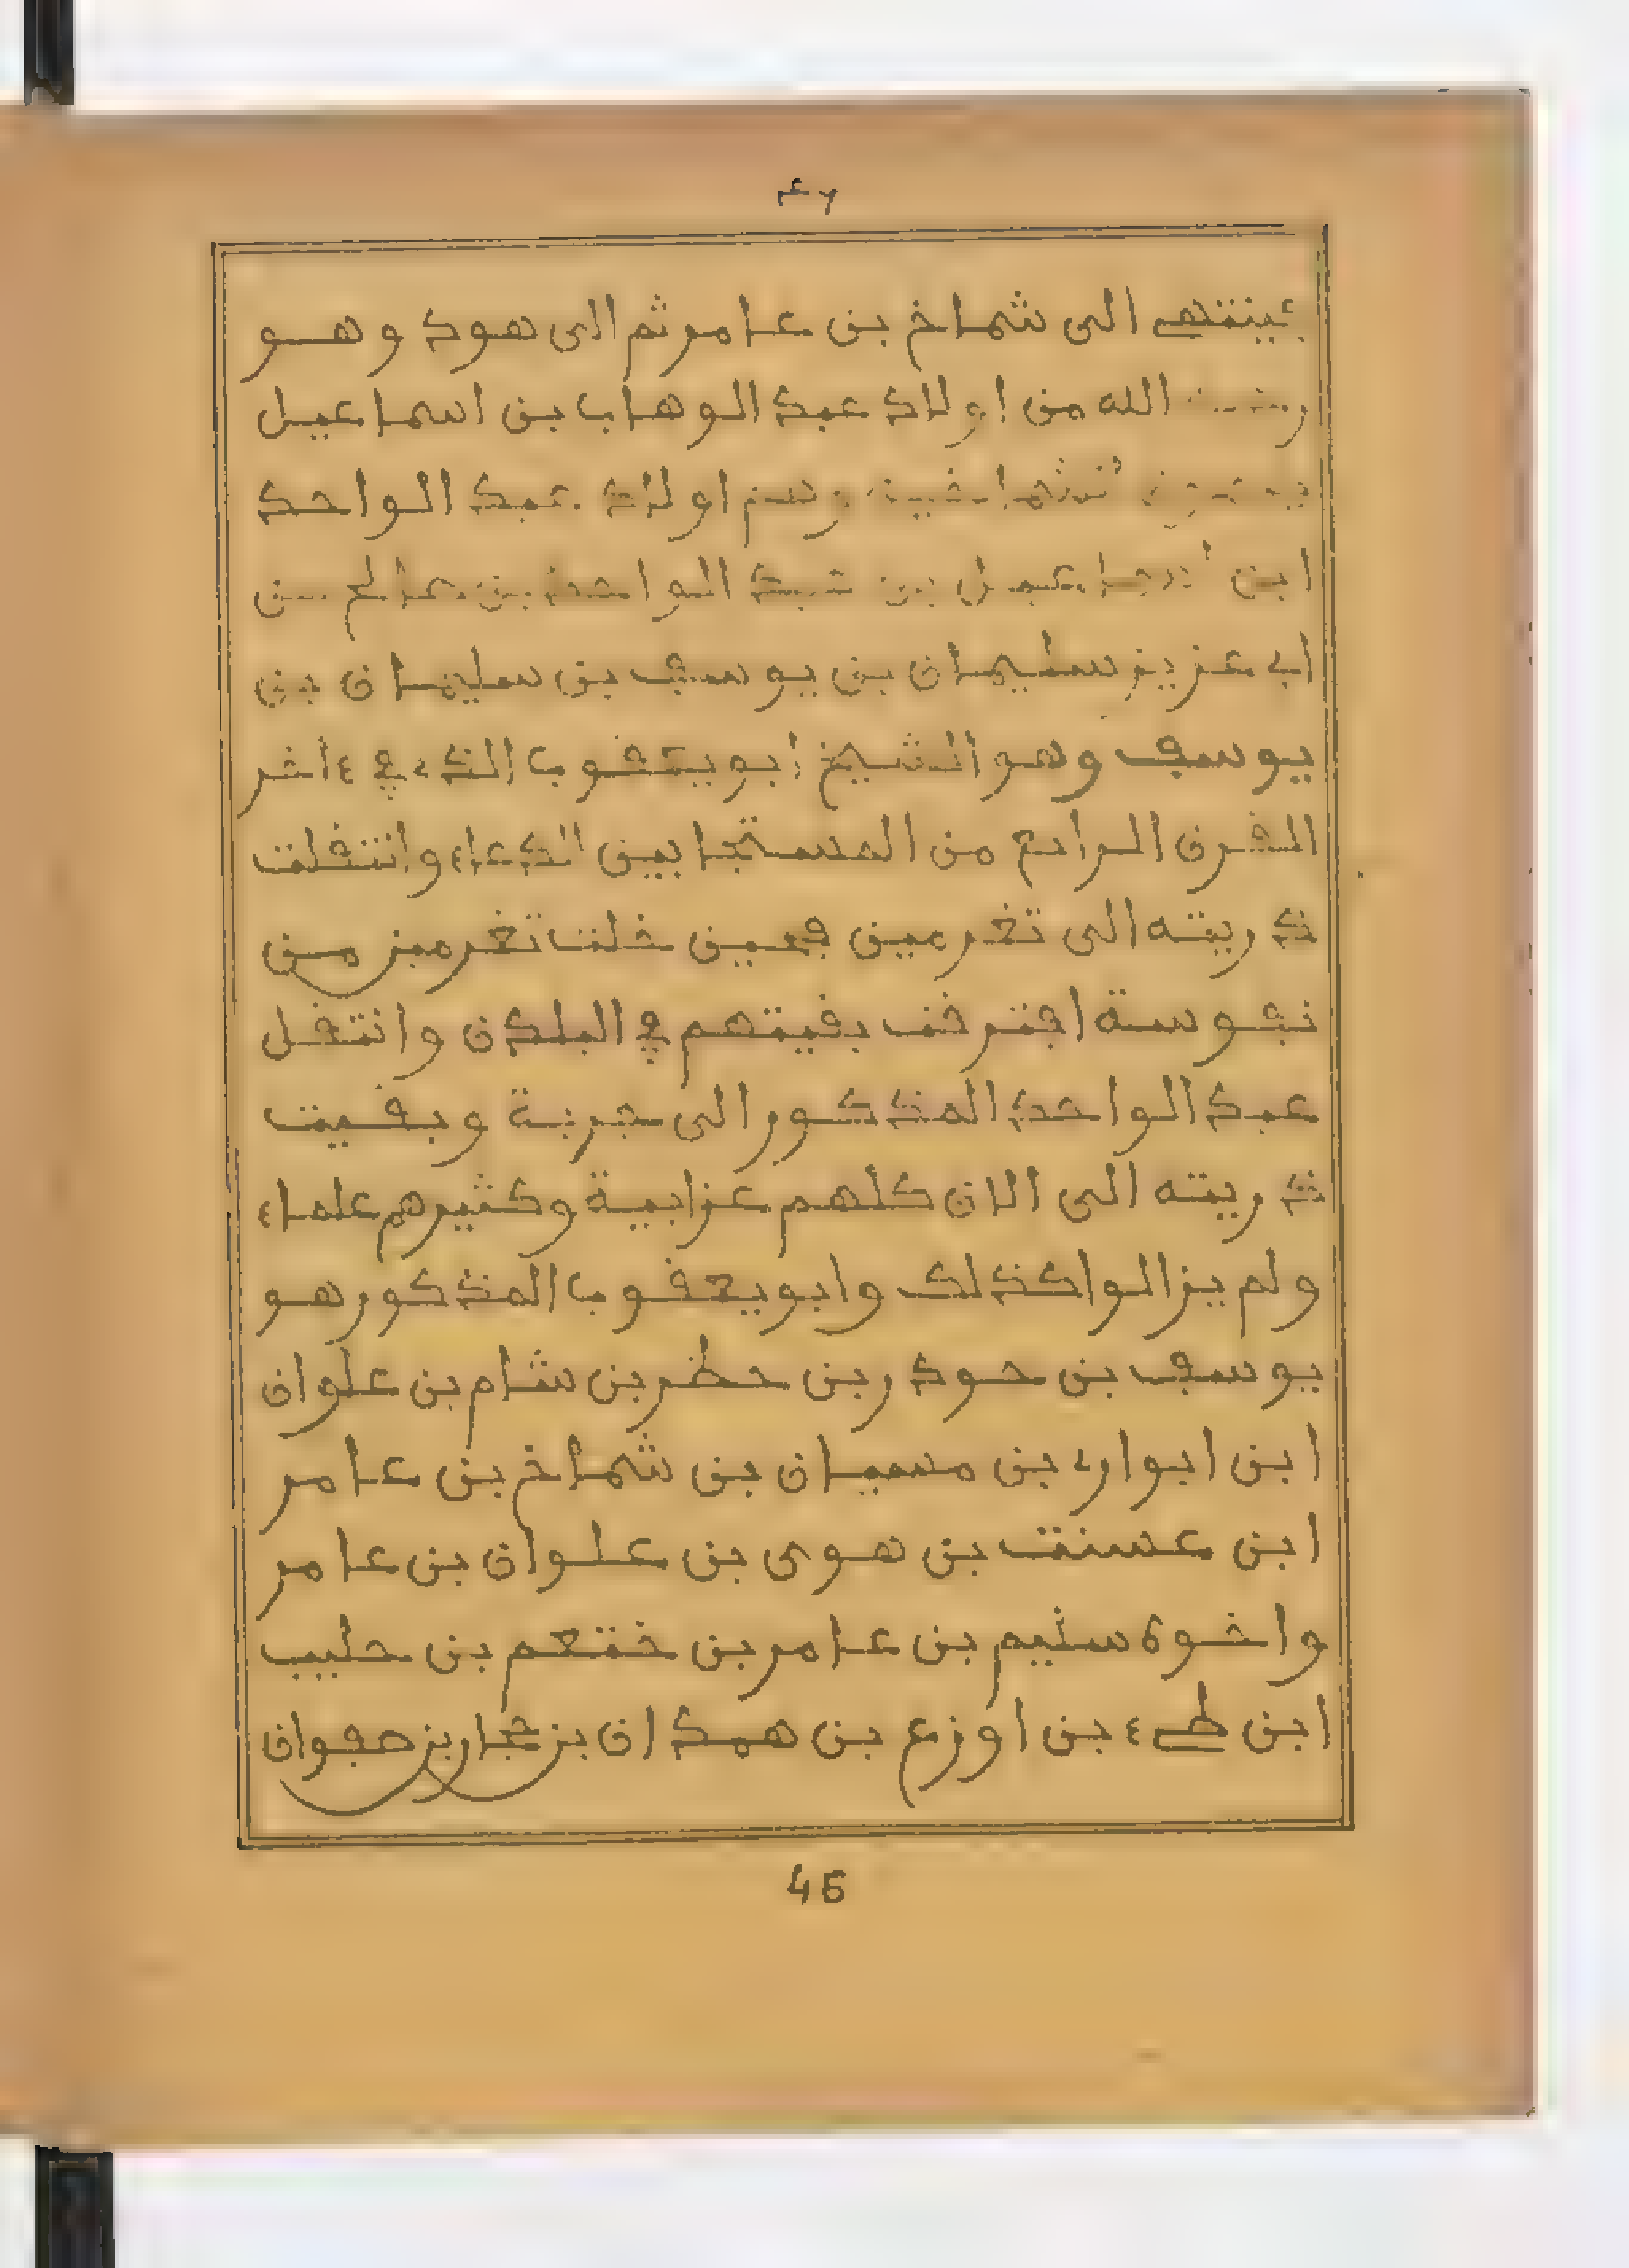 ٤٦
فينتهي الى شماخ بن عامر ثم الى هود وهو
الله من اولاد عبد الوهاب بن اسماعيل
اولاد عبد الواحد
ابن بن عبد الواحد بن صالح بن
ابي عزيز سليمان بن يوسف بن سليمان بن
يوسف وهو الشيخ ابو يعقوب الذي في ءاخر
القرن الرابع من المستجابين الدعاء وانتقلت
ذريته الى تغرمين فحين خلت تغرمين من
نفوسة افترقت بقيتهم في البلدن وانتقل
عبد الواحد المذكور الى جربة وبقيت
ذريته الى الان كلهم عزابية وكثيرهم علماء
ولم يزالوا كذلك وابو يعقوب المذكور هو
يوسف بن حودر بن حظر بن شام بن علوان
ابن ابواري بن مسيان بن شماخ بن عامر
ابن عسنت بن هوى بن علوان بن عامر
واخوه سليم بن عامر بن خثعم بن حليب
ابن طيء بن اوزع بن همدان بن حجار بن صفوان
46